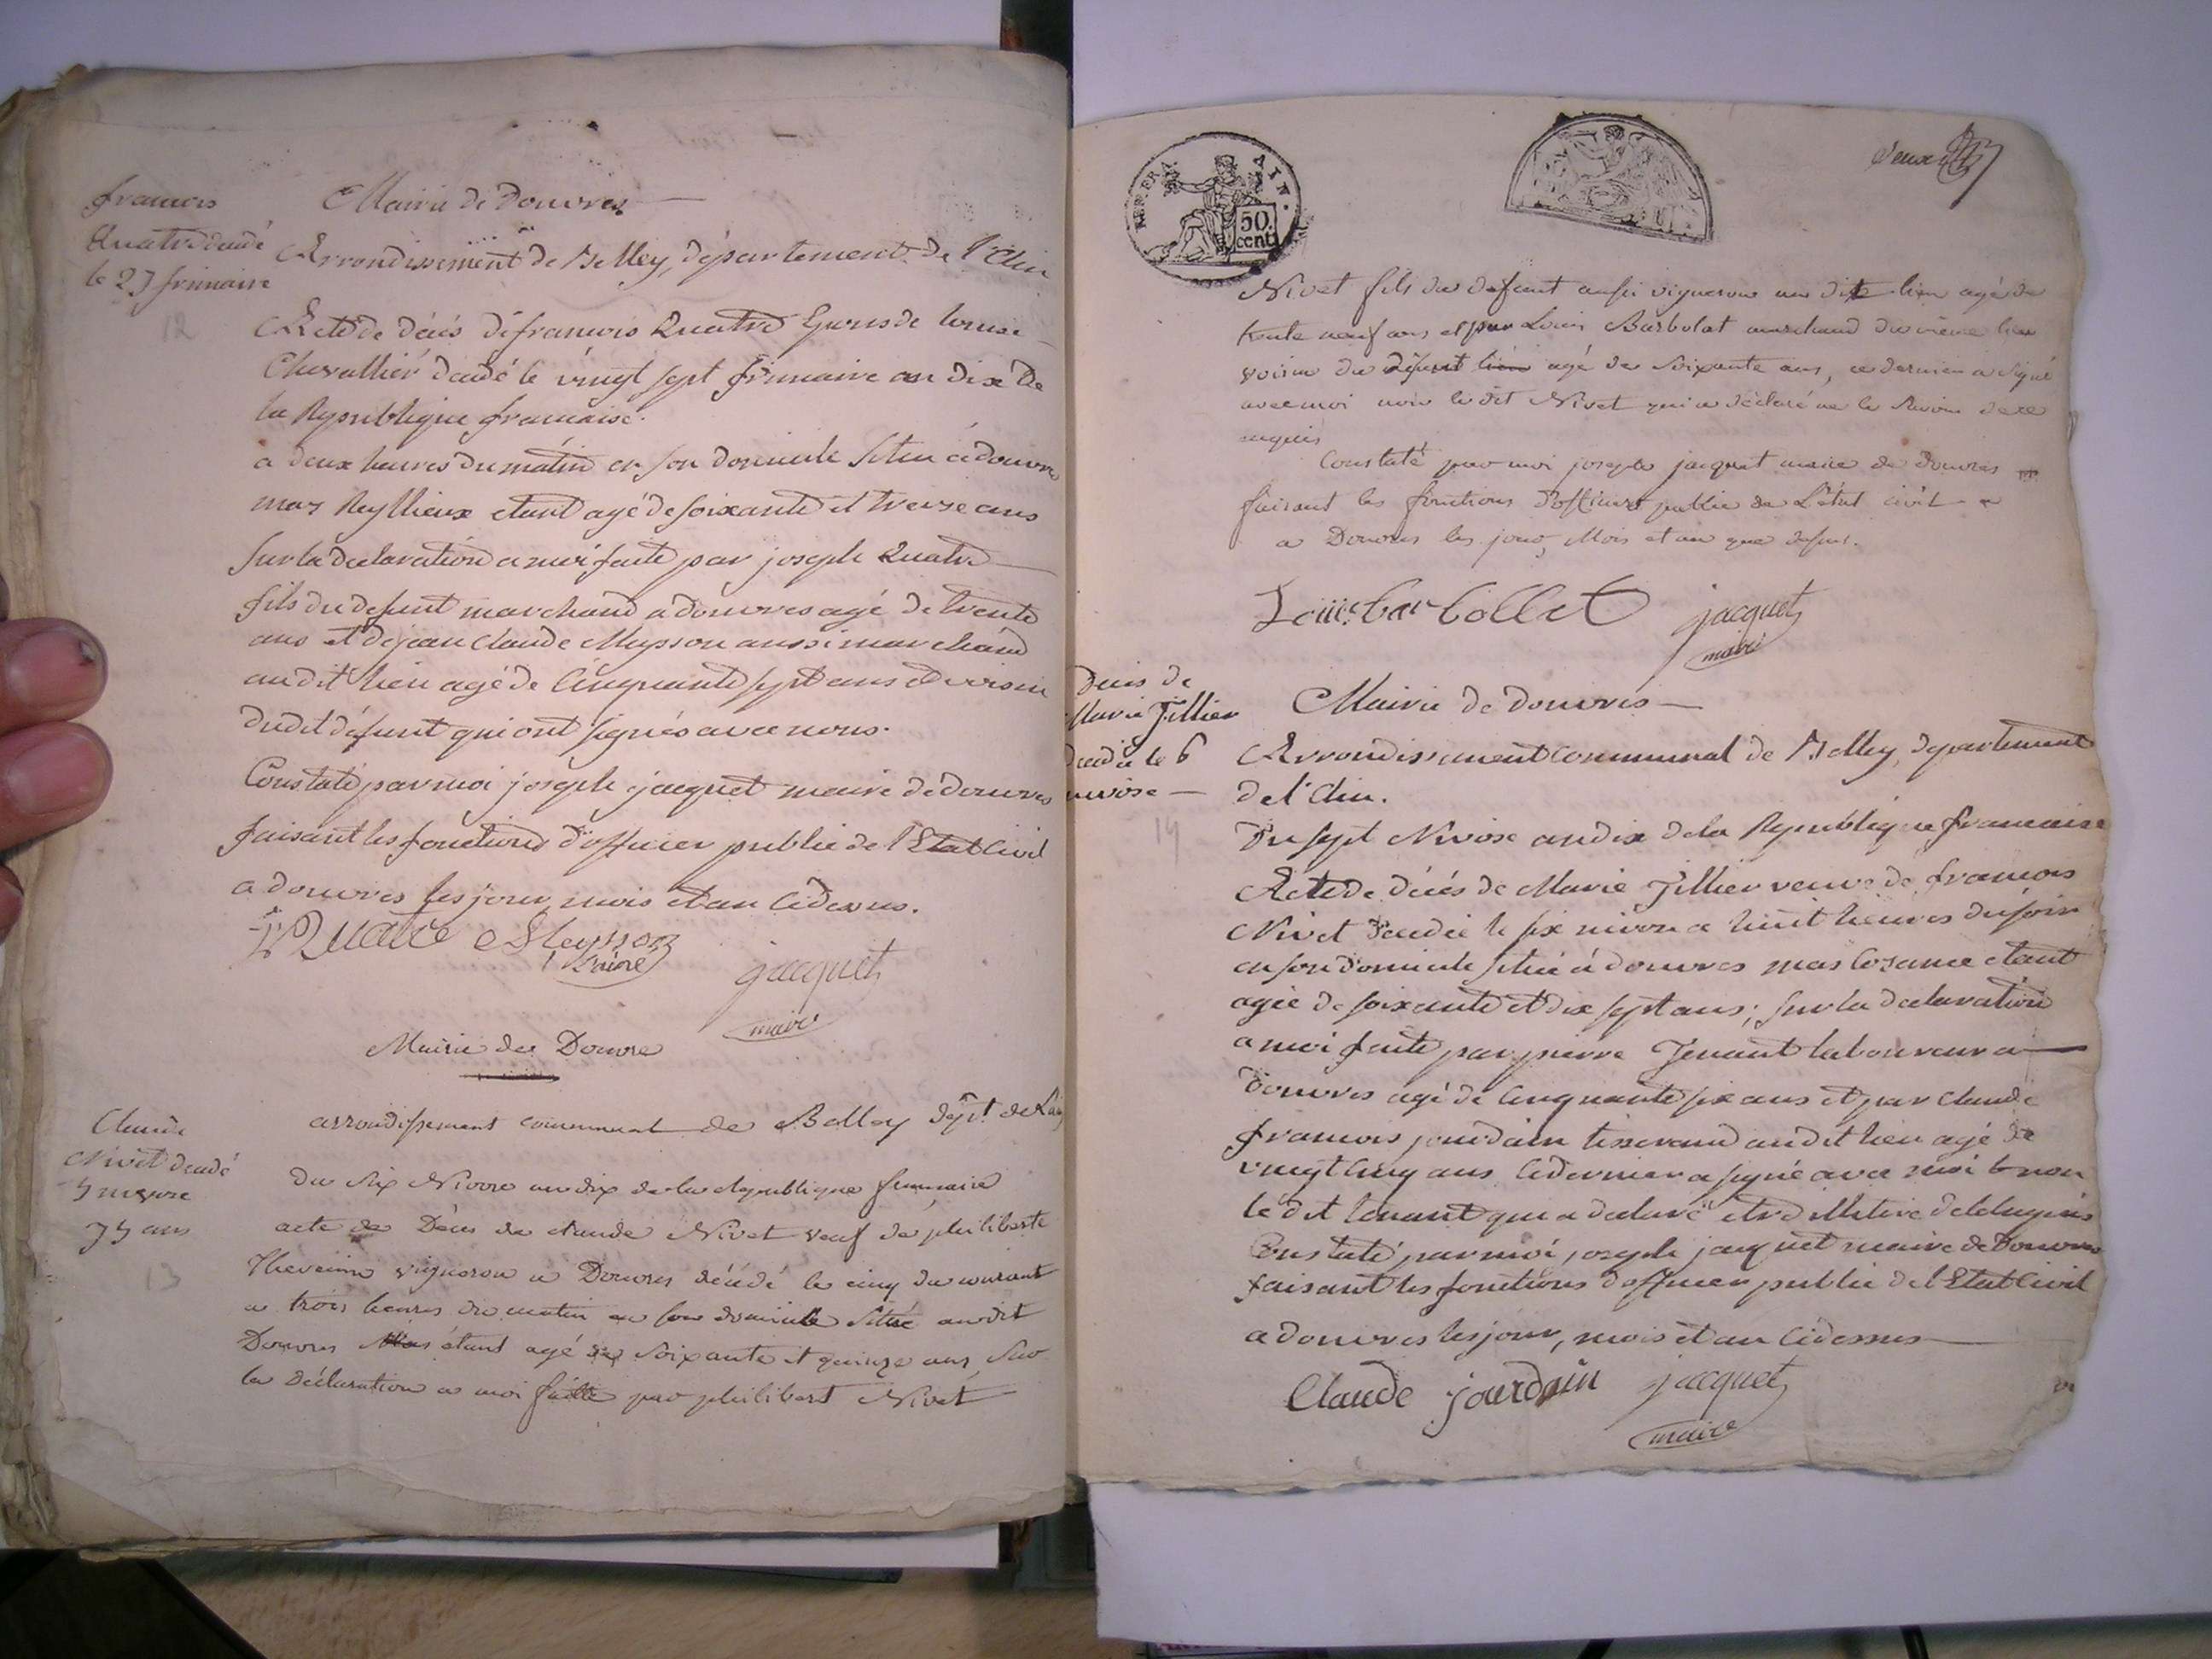 francois
Quatre decedé
le 27 frimaire
12
Mairie de Douvres
Arrondissement de Belley, département de l'Ain
Acte de décés de francois Quatre Epous de louise
Chevallier decedé le vingt sept frimaire an dix de
la Republique francaise.
a deux heures du matin en son domicile situé a douvre
mas Reyllieux etant agé de soixante et treize ans
sur la declaration a moi faite par joseph Quatre
fils du defunt marchand a douvres agé de trente
ans et de jean claude Meysson aussi marchand
audit lieu agé de Cinquante sept ans et voisin
dudit défunt qui ont signés avec nous.
Constaté par moi joseph jacquet maire de douvres
faisant les fonctions d'officier public de l'Etat Civil
a douvres les jour, mois et an cidessus.
Quatre Meysson
l'ainé
jacquet
maire
Mairie de Douvre
Claude
Nivet decedé
5 nivose
75 ans
13
arrondissement communal de Belley dépt. de l'ain
du six Nivose an dix de la république francaise
acte de Décès de claude Nivet veuf de philiberte
Thevenin vigneron a Douvres décédé le cinq du courant
a trois heures du matin en son domicile situé audit
Douvres étant agé de soixante et quinze ans, sur
la déclaration a moi faitte par philibert Nivet
REP. FRA. AIN.
50 cent.
deux
Nivet fils du défunt aussi vigneron au dit lieu agé de
trente neuf ans et par Louis Barbolat marchand du même lieu
voisin du défunt agé de soixante ans, ce dernier a signé
avec moi non le dit Nivet qui a déclaré ne le savoir de ce
requis
Constaté par moi joseph jacquet maire de Douvres
faisant les fonctions d'officier public de L'état civil
a Douvres les jour, Mois et an que dessus.
Louis barbollet jacquet
maire
Decés de
Marie Tillier
decedée le 6
nivose
14
Mairie de Douvres
Arrondissement communal de Belley, departement
de l'Ain.
Du sept Nivose an dix de la Republique francaise
Acte de décés de Marie Tillier veuve de francois
Nivet decedée le six nivose a huit heures du soir
en son domicile situé a douvres mas Cozance etant
agée de soixante et dix sept ans; sur la declaration
a moi faite par pierre Tenant laboureur a
douvres agé de cinquante six ans et par claude
francois jourdain tisserand audit lieu agé de
vingt cinq ans cedernier a signé avec moi et non
le dit tenant qui a declaré etre illitere de ce requis
Constaté par moi joseph jacquet maire de Douvres
faisant les fonctions d'officier public de l'Etat Civil
a douvres les jour, mois et an cidessus
Claude jourdain jacquet
maire